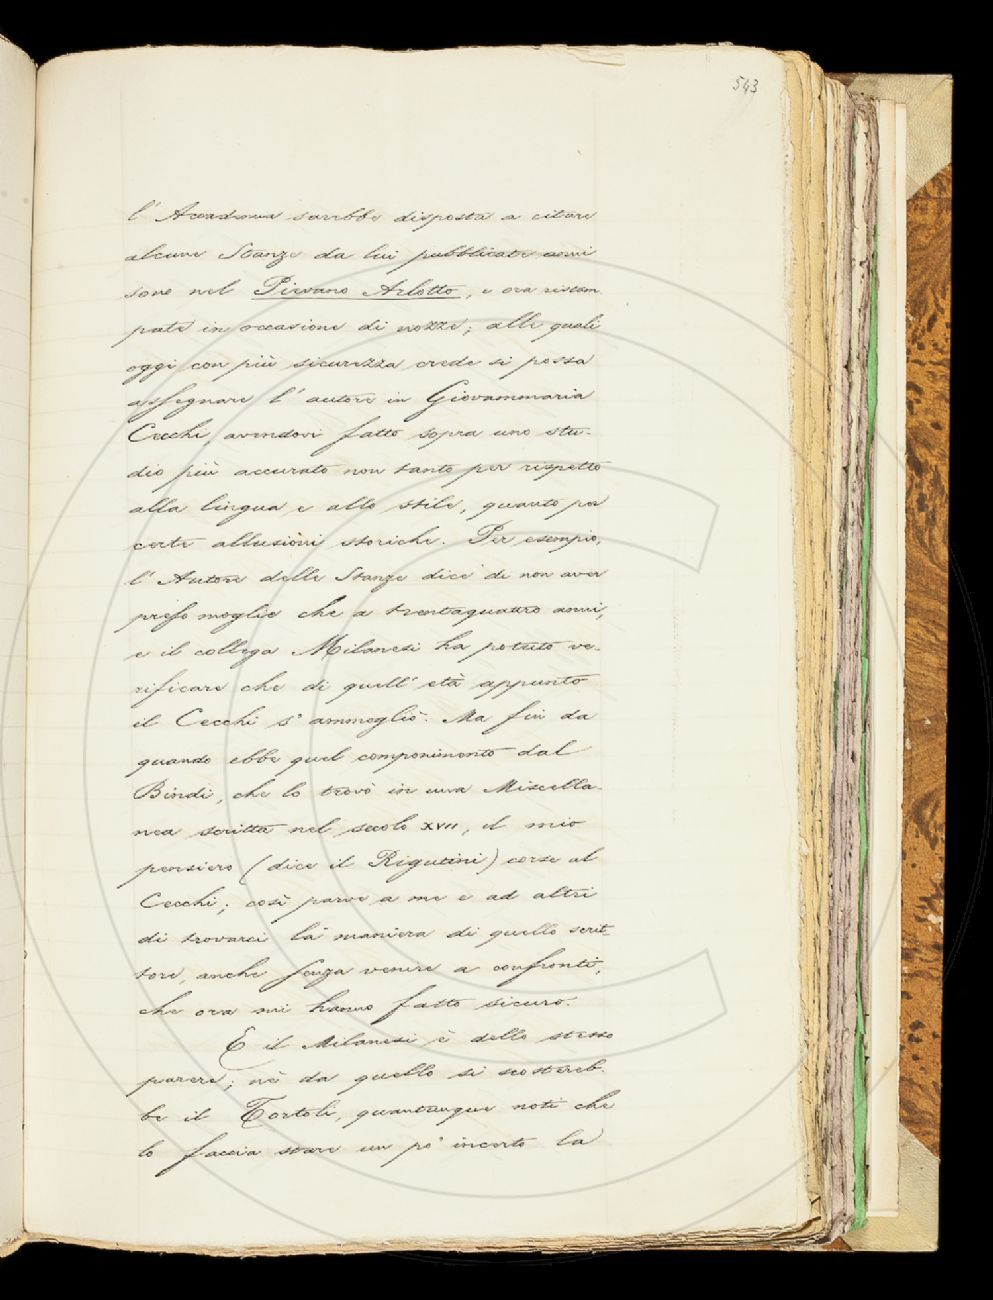 543
l' Accademia sarebbe disposta a citare
alcune Stanze da lui pubblicate anni
sono nel Piovano Arlotto, e ora ristam
pate in occasione di nozze; alle quali
oggi con più sicurezza crede si possa
assegnare l' autore in Giovammaria
Cecchi, avendovi fatto sopra uno stu-
dio più accurato non tanto per rispetto
alla lingua e allo stile, quanto per
certe allusioni storiche. Per esempio,
l' Autore delle Stanze dice di non aver
preso moglie che a trentaquattro anni,
e il collega Milanesi ha potuto ve-
rificare che di quell' età appunto
il Cecchi s' ammogliò. Ma fin da
quando ebbe quel componimento dal
Bindi, che lo trovò in una Miscella-
nea scritta nel secolo XVII, il mio
pensiero (dice il Rigutini) corse al
Cecchi; così parve a me e ad altri
di trovarci la maniera di quello scrit-
tore, anche senza venire a confronti,
che ora mi hanno fatto sicuro.
E il Milanesi è dello stesso
parere; nè da quello si scostereb-
be il Tortoli, quantunque noti che
lo faccia stare un po' incerto la